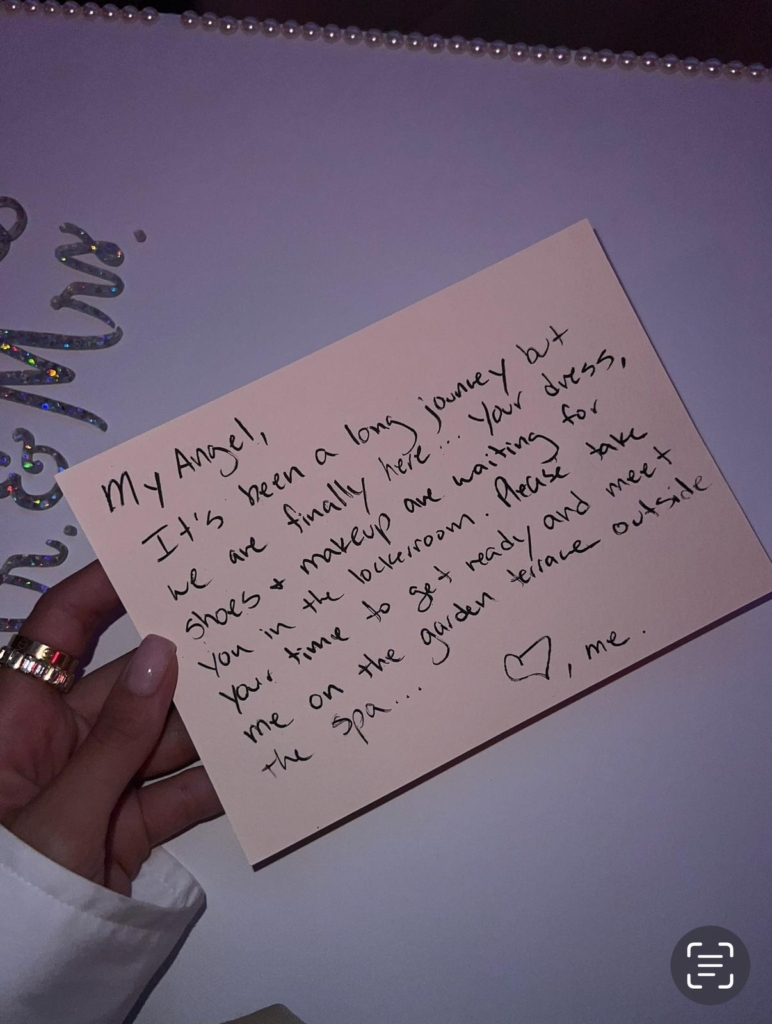 Mr. & Mrs.
My Angel,
It's been a long journey but
we are finally here... Your dress,
shoes & makeup are waiting for
you in the lockerroom. Please take
your time to get ready and meet
me on the garden terrace outside
the spa...
♡, me.